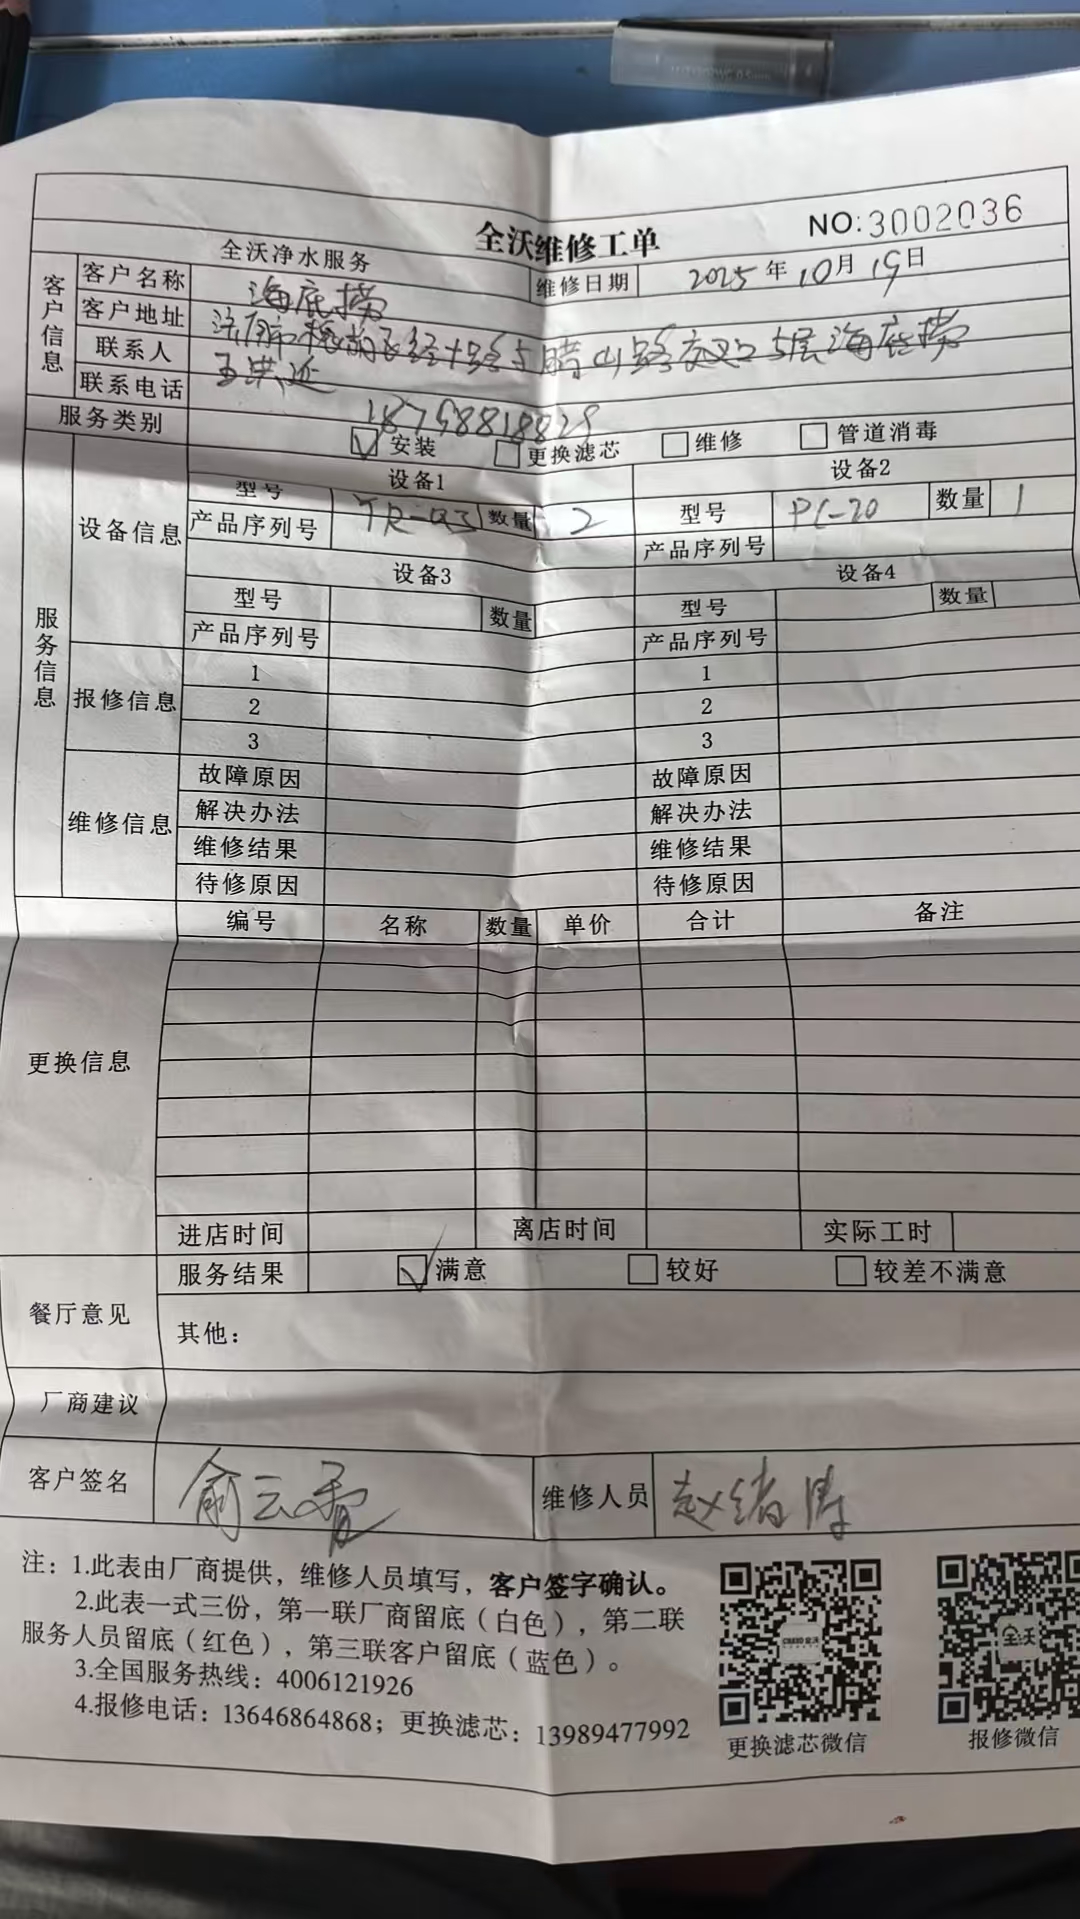 全沃维修工单
NO:3002036
全沃净水服务
维修日期 2025年10月19日
客户信息
客户名称 海底捞
客户地址 济南市槐荫区经十路与腊山路交叉口5层海底捞
联系人 王洪延
联系电话 18758818829
服务类别 安装 更换滤芯 维修 管道消毒
服务信息
设备信息
设备1 设备2
型号 YR-Q3 数量 2 型号 PC-20 数量 1
产品序列号 产品序列号
设备3 设备4
型号 数量 型号 数量
产品序列号 产品序列号
报修信息
1 1
2 2
3 3
维修信息
故障原因 故障原因
解决办法 解决办法
维修结果 维修结果
待修原因 待修原因
更换信息
编号 名称 数量 单价 合计 备注
进店时间 离店时间 实际工时
餐厅意见
服务结果 满意 较好 较差不满意
其他：
厂商建议
客户签名 俞云霞 维修人员 赵绪涛
注：1.此表由厂商提供，维修人员填写，客户签字确认。
2.此表一式三份，第一联厂商留底（白色），第二联
服务人员留底（红色），第三联客户留底（蓝色）。
3.全国服务热线：4006121926
4.报修电话：13646864868；更换滤芯：13989477992
更换滤芯微信
全沃
报修微信